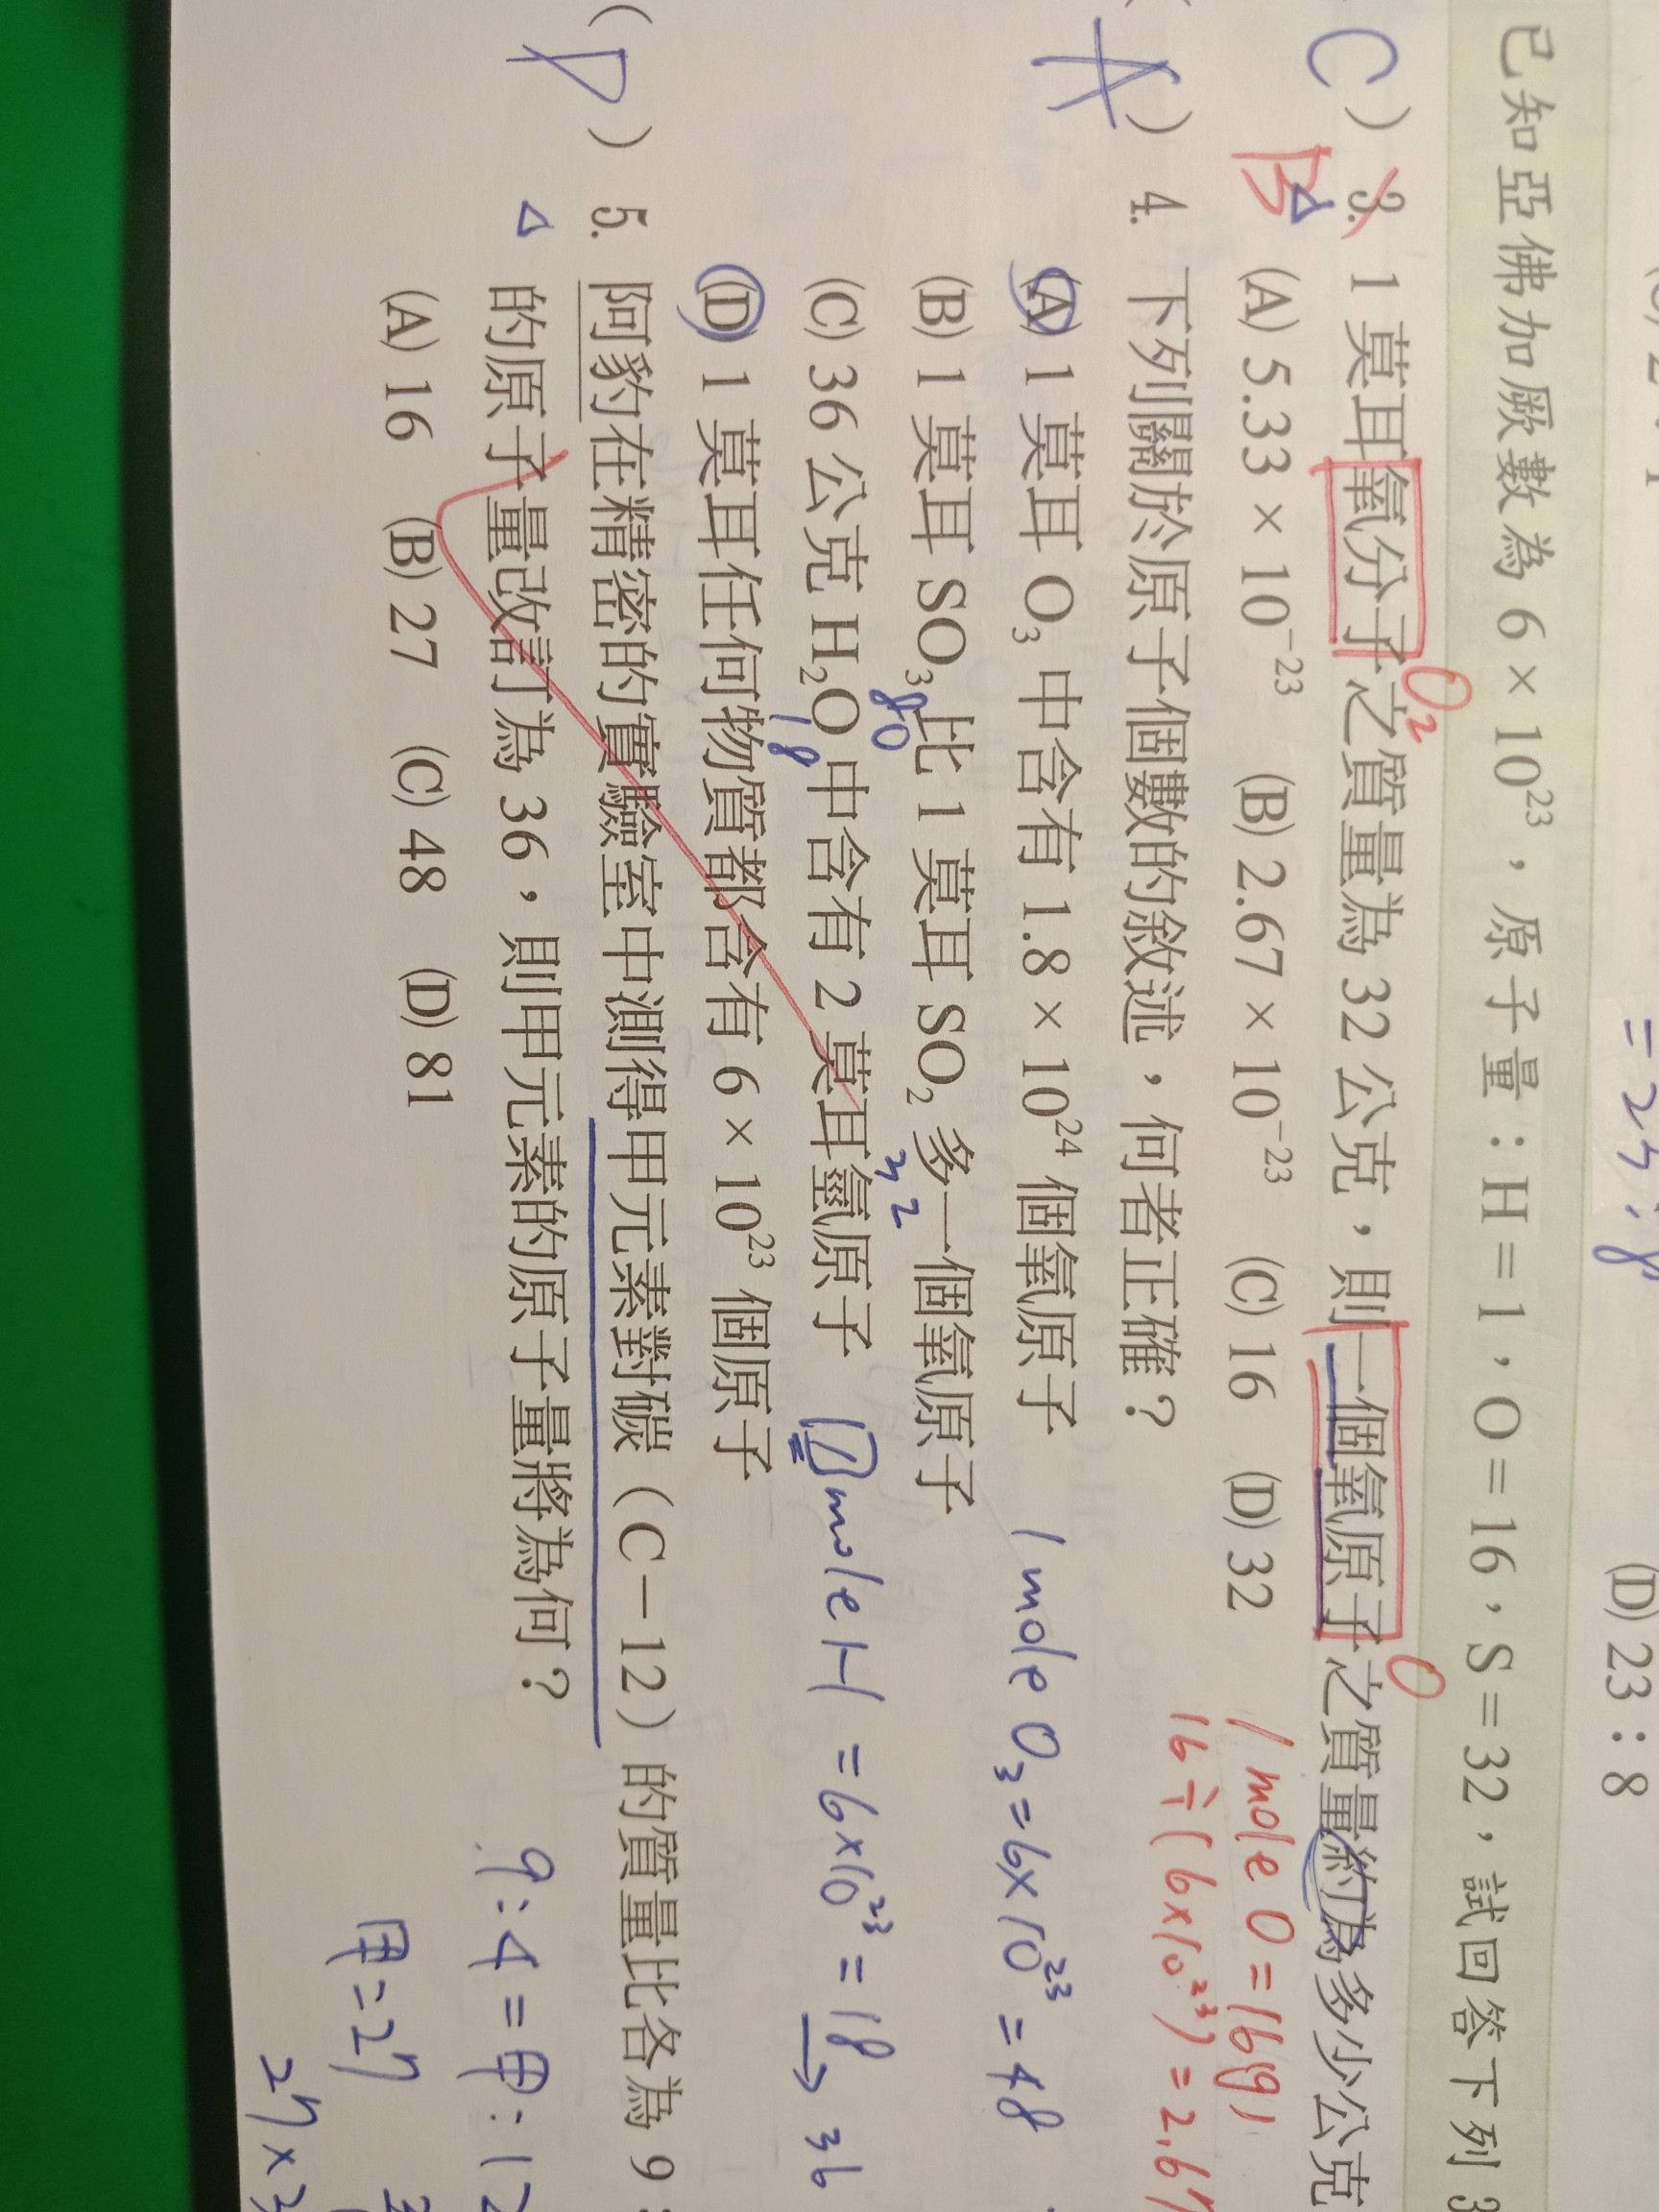 (D) 23:8
= 24:8
已知亞佛加厥數為 6 × 10²³，原子量：H＝1，O＝16，S＝32，試回答下列 3
C ) 3. 1 莫耳氧分子之質量為 32 公克，則一個氧原子之質量約為多少公克
O₂ O
B △ (A) 5.33 × 10⁻²³ (B) 2.67 × 10⁻²³ (C) 16 (D) 32
1 mole O = 16g,
16 ÷ (6×10²³) = 2.67
( A ) 4. 下列關於原子個數的敘述，何者正確？
(A) 1 莫耳 O₃ 中含有 1.8 × 10²⁴ 個氧原子 1 mole O₃ = 6×10²³ = 48
(B) 1 莫耳 SO₃ 比 1 莫耳 SO₂ 多一個氧原子
80 32
(C) 36 公克 H₂O 中含有 2 莫耳氫原子 1 mole H = 6×10²³ = 18 → 36
18
(D) 1 莫耳任何物質都含有 6 × 10²³ 個原子
( D ) 5. 阿豹在精密的實驗室中測得甲元素對碳（C－12）的質量比各為 9：
△ 的原子量改訂為 36，則甲元素的原子量將為何？ 9:4 = 甲:12
(A) 16 (B) 27 (C) 48 (D) 81 甲=27
27×3